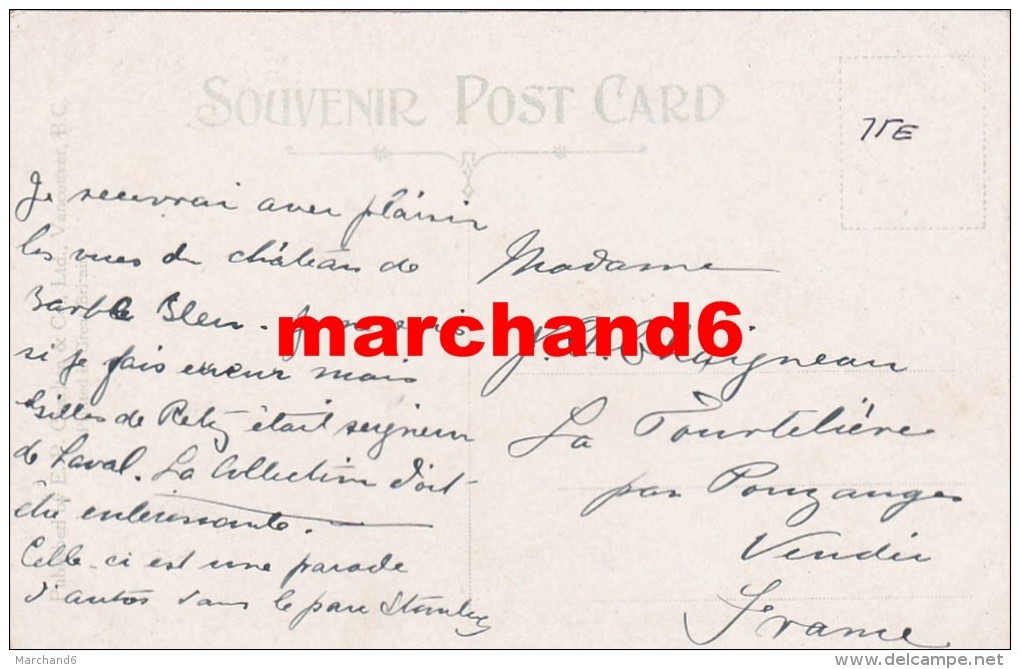 SOUVENIR POST CARD
75E
Je recevrai avec plaisir
les vues du château de
Barbe Bleu.
si je fais erreur mais
Gilles de Retz était seigneur
de Laval. La Collection doit
être intéressante.
Celle-ci est une parade
d'autos dans le parc Stanley
Madame
Chaigneau
La Tourtelière
par Pouzauges
Vendée
France
marchand6
Published by E. & Co. Ltd., Vancouver, B.C.
Marchand6
delcampe.net